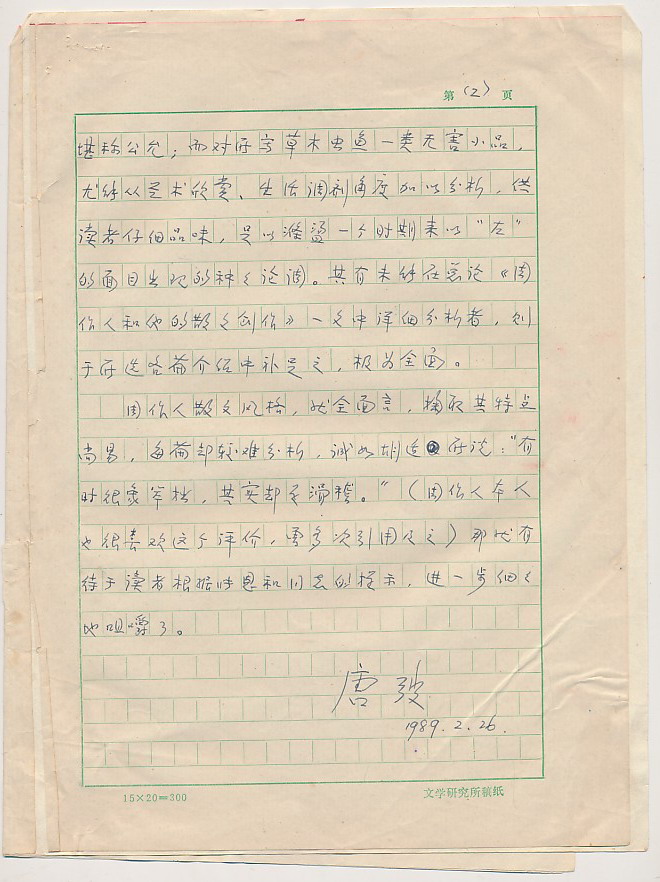 第(2)页
堪称公允；而对所写草木虫鱼一类无害小品，
尤能从艺术欣赏、生活调剂角度加以分析，供
读者仔细品味，足以涤盪一个时期来以“左”
的面目出现的种々论调。其有未能在总论《周
作人和他的散文创作》一文中详细分析者，则
于所选各篇介绍中补足之，极为全面。
周作人散文风格，就全面言，掬取其特点
尚易，每篇却较难分析，诚如胡适所说：“有
时很象笨拙，其实却是滑稽。”（周作人本人
也很喜欢这个评价，曾多次引用及之）那就有
待于读者根据 和 的提示，进一步细々
地咀嚼了。
唐弢
1989.2.26.
15×20=300
文学研究所稿纸